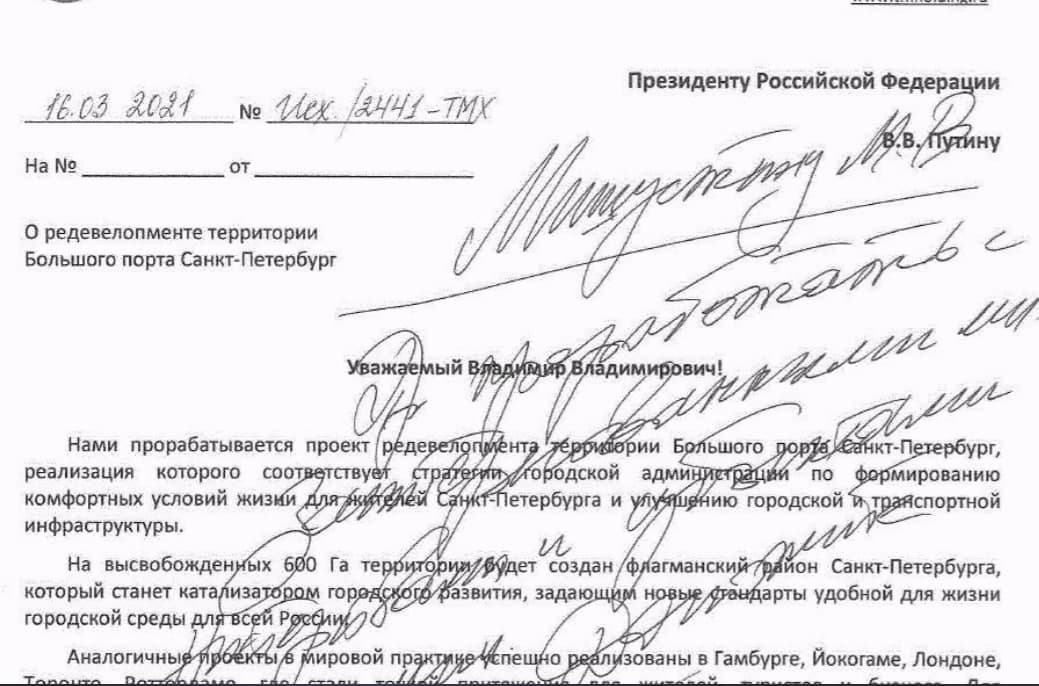 16.03 2021 № Исх./2441-ТМХ
На № от
О редевелопменте территории
Большого порта Санкт-Петербург
Президенту Российской Федерации
В.В. Путину
Мишустину М.В.
проработать с
Уважаемый Владимир Владимирович!
Нами прорабатывается проект редевелопмента территории Большого порта Санкт-Петербург,
реализация которого соответствует стратегии городской администрации по формированию
комфортных условий жизни для жителей Санкт-Петербурга и улучшению городской и транспортной
инфраструктуры.
На высвобожденных 600 Га территории будет создан флагманский район Санкт-Петербурга,
который станет катализатором городского развития, задающим новые стандарты удобной для жизни
городской среды для всей России.
Аналогичные проекты в мировой практике успешно реализованы в Гамбурге, Йокогаме, Лондоне,
Торонто, Роттердаме, где стали точкой притяжения для жителей, туристов и бизнеса. Для